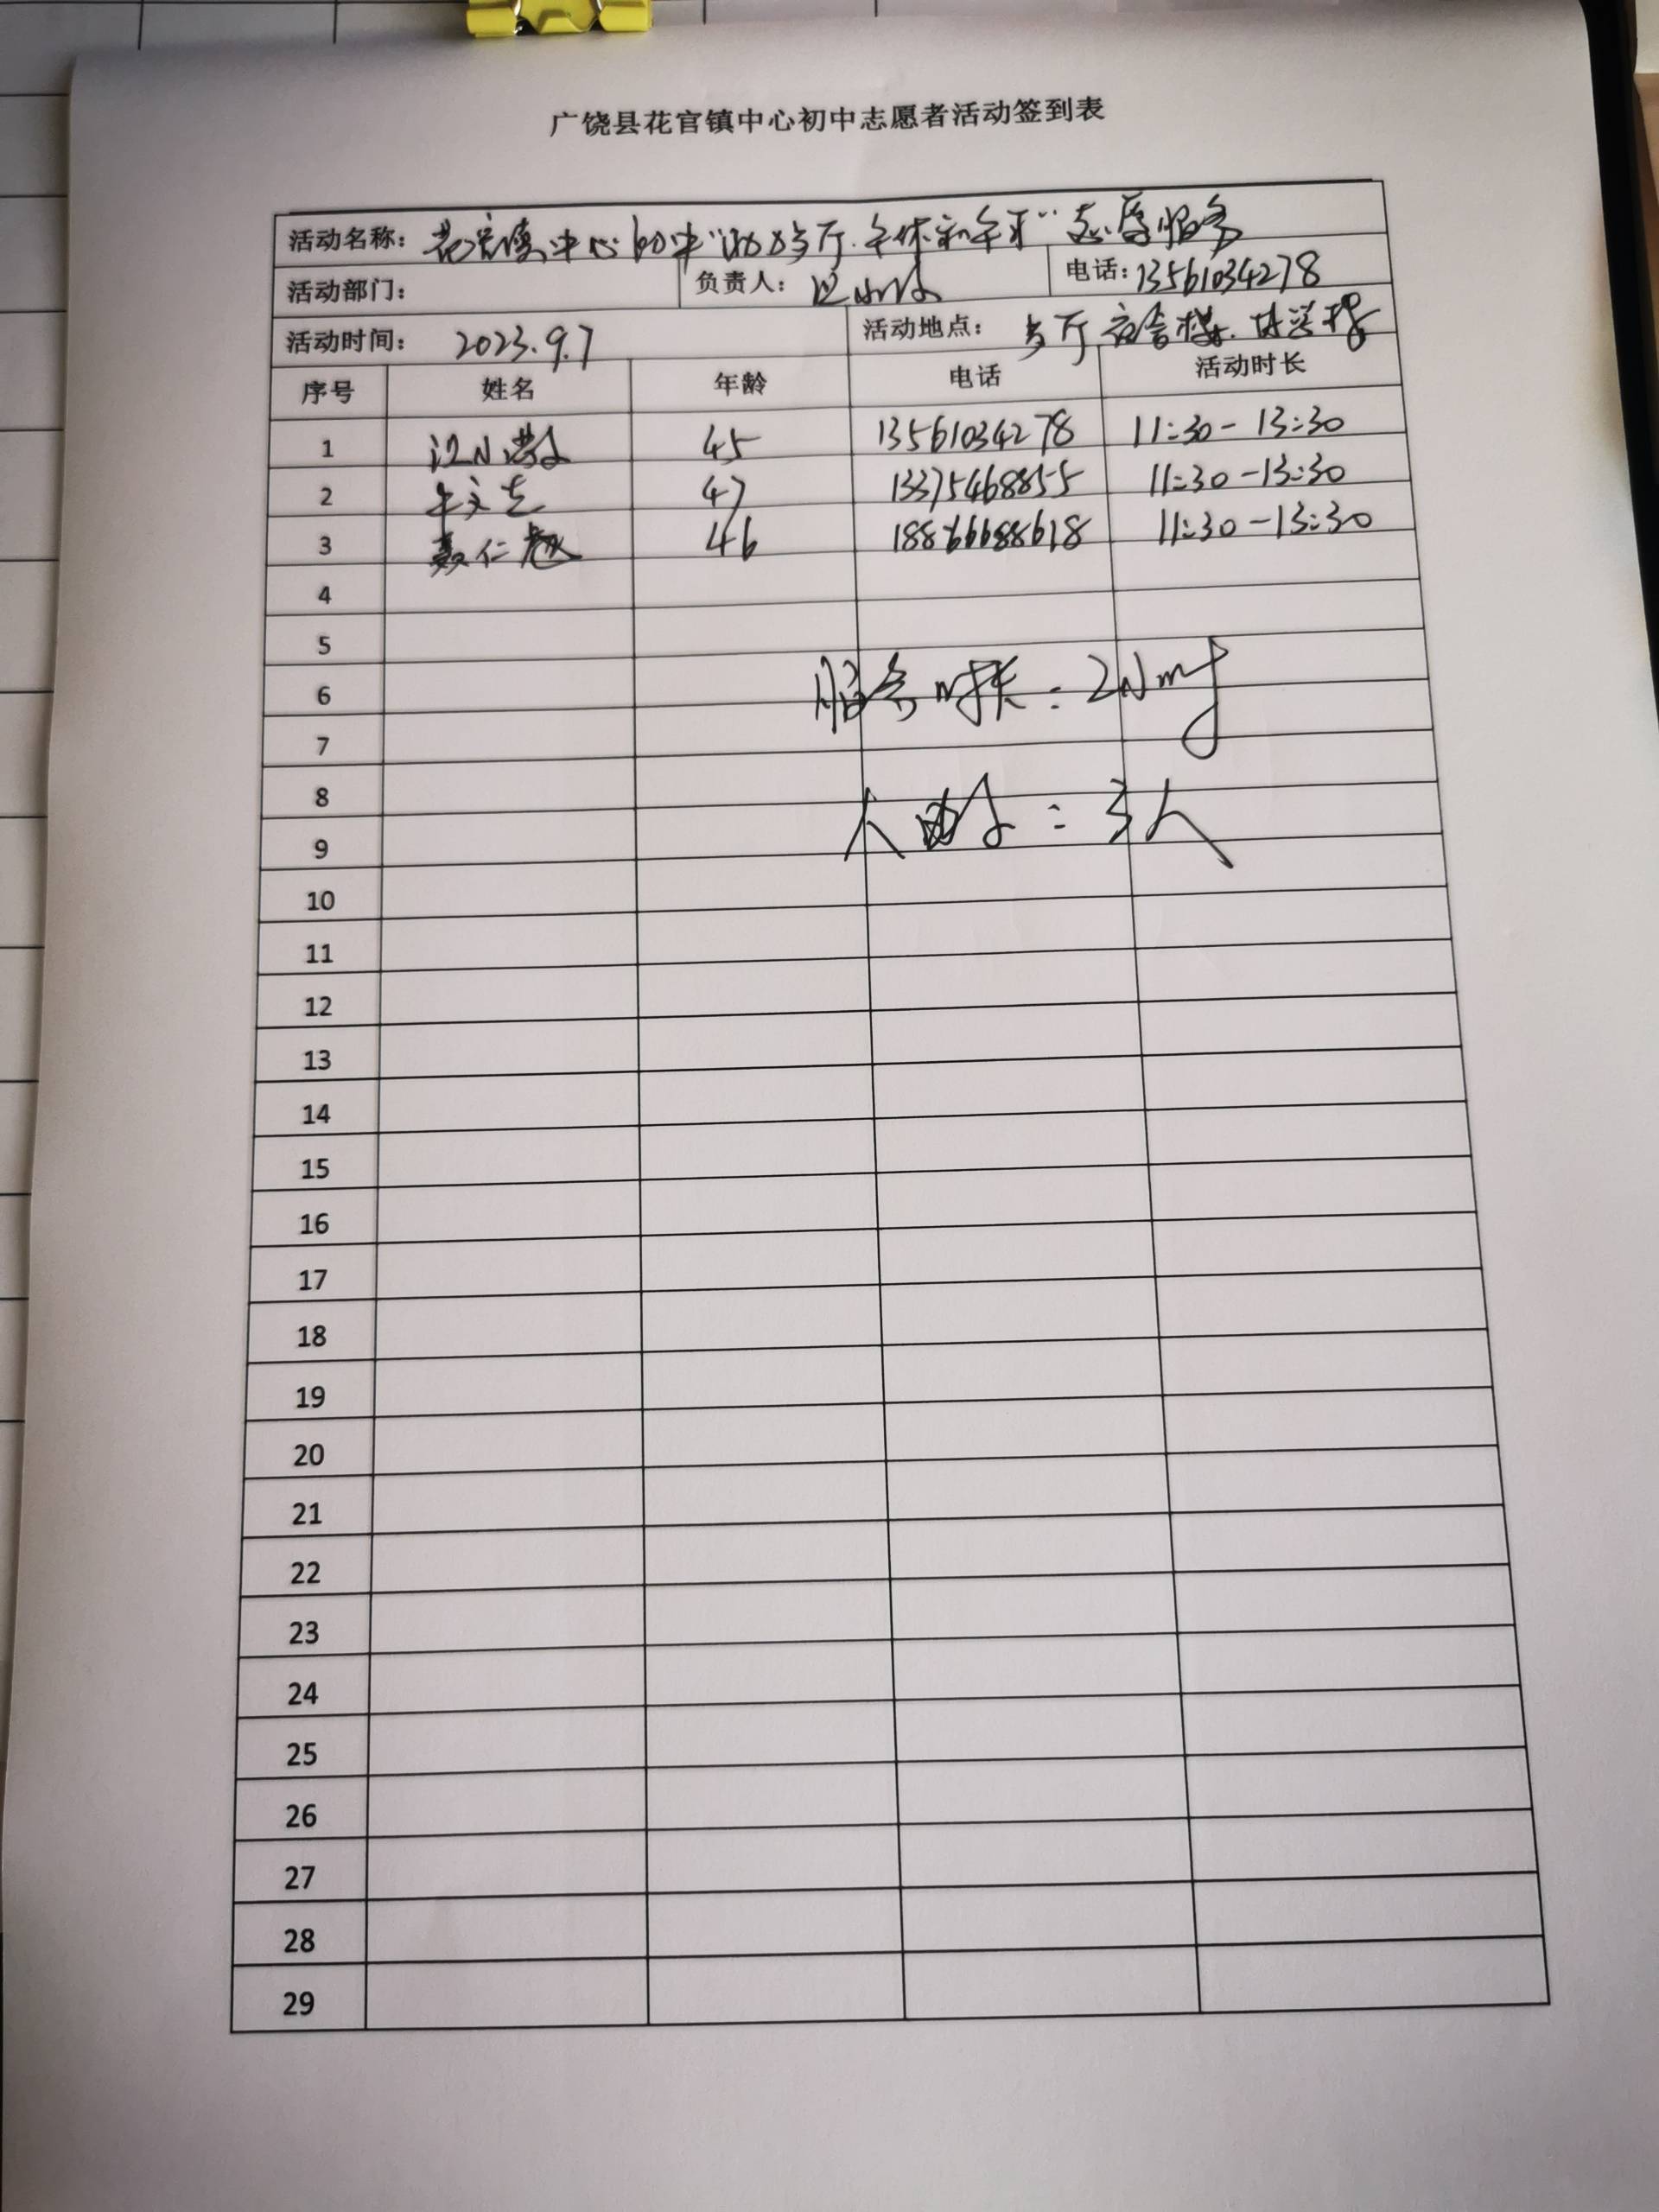 广饶县花官镇中心初中志愿者活动签到表
活动名称： 花官镇中心初中 志愿服务
活动部门： 负责人： 电话：13561034278
活动时间： 2023.9.7 活动地点： 宿舍楼
序号 姓名 年龄 电话 活动时长
1 45 13561034278 11:30-13:30
2 47 13375468855 11:30-13:30
3 聂仁 46 11:30-13:30
4
5
6 服务时长：2小时
7
8
人数：3人
9
10
11
12
13
14
15
16
17
18
19
20
21
22
23
24
25
26
27
28
29